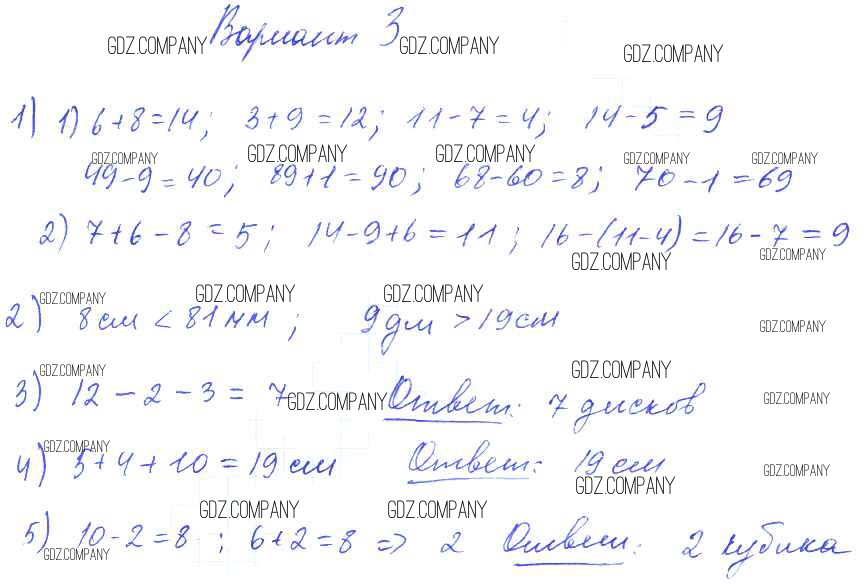 Вариант 3
GDZ.COMPANY GDZ.COMPANY GDZ.COMPANY
1) 1) 6+8=14; 3+9=12; 11-7=4; 14-5=9
GDZ.COMPANY GDZ.COMPANY GDZ.COMPANY GDZ.COMPANY GDZ.COMPANY
49-9=40; 89+1=90; 68-60=8; 70-1=69
2) 7+6-8=5; 14-9+6=11; 16-(11-4)=16-7=9
GDZ.COMPANY GDZ.COMPANY
GDZ.COMPANY GDZ.COMPANY GDZ.COMPANY
2) 8 см < 81 мм; 9 дм > 19 см
GDZ.COMPANY
GDZ.COMPANY GDZ.COMPANY
3) 12-2-3=7 Ответ: 7 дисков
GDZ.COMPANY GDZ.COMPANY
GDZ.COMPANY
4) 5+4+10=19 см Ответ: 19 см
GDZ.COMPANY GDZ.COMPANY
GDZ.COMPANY GDZ.COMPANY
5) 10-2=8; 6+2=8 => 2 Ответ: 2 кубика
GDZ.COMPANY